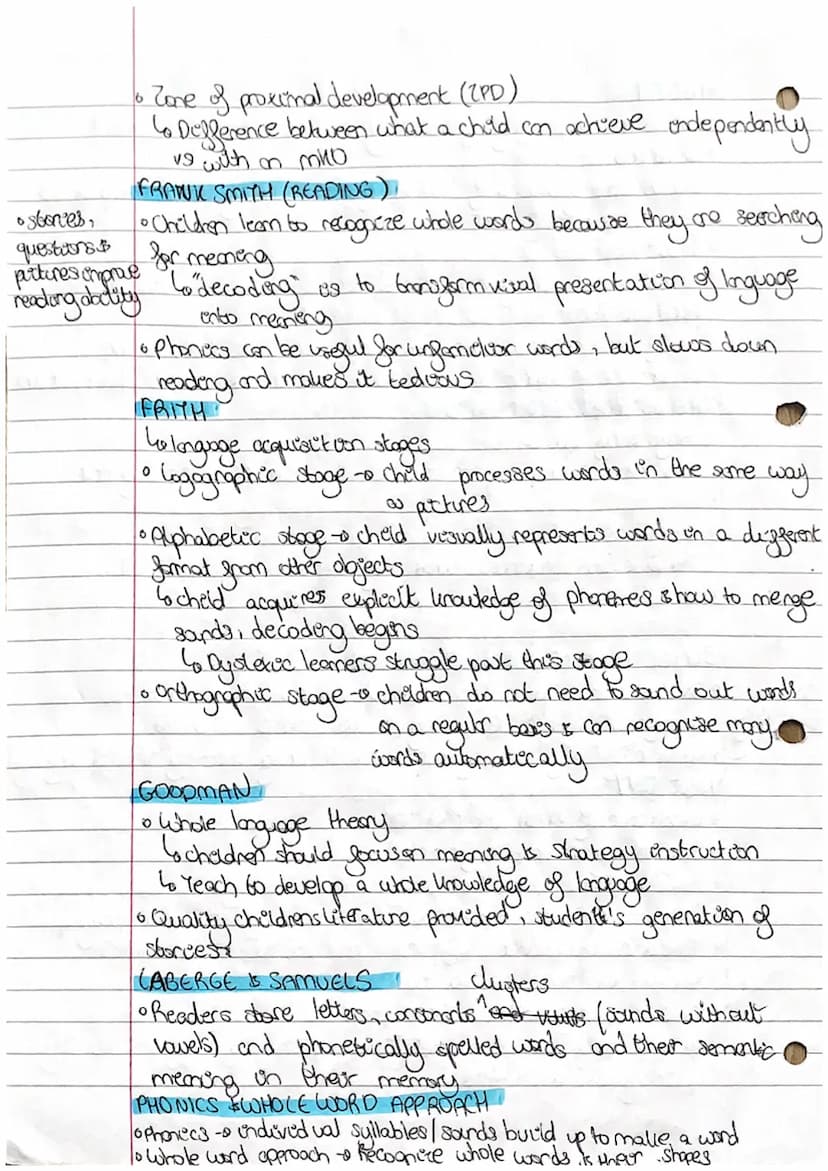 • Zone of proximal development (ZPD)
↳ Difference between what a child can achieve independently
vs with an MKO
FRANK SMITH (READING)
• Children learn to recognize whole words because they are searching
for meaning
• stories,
questions &
pictures improve
reading ability
↳ "decoding" is to transform visual presentation of language
into meaning
• Phonics can be useful for unfamiliar words, but slows down
reading and makes it tedious
FRITH
↳ language acquisition stages
• Logographic stage → child processes words in the same way
as pictures
• Alphabetic stage → child visually represents words in a different
format from other objects
↳ child acquires explicit knowledge of phonemes & how to merge
sounds, decoding begins
↳ Dyslexic learners struggle past this stage
• Orthographic stage → children do not need to sound out words
on a regular basis & can recognise many
words automatically
GOODMAN
• Whole language theory
↳ children should focus on meaning & strategy instruction
↳ Teach to develop a whole knowledge of language
• Quality childrens literature provided, students's generation of
stories
LABERGE & SAMUELS
clusters
• Readers store letters, consonants ^ and vowels (sounds without
vowels) and phonetically spelled words and their semantic
meaning in their memory
PHONICS & WHOLE WORD APPROACH
• Phonics → individual syllables / sounds build up to make a word
• Whole word approach → Recognize whole words & their shapes